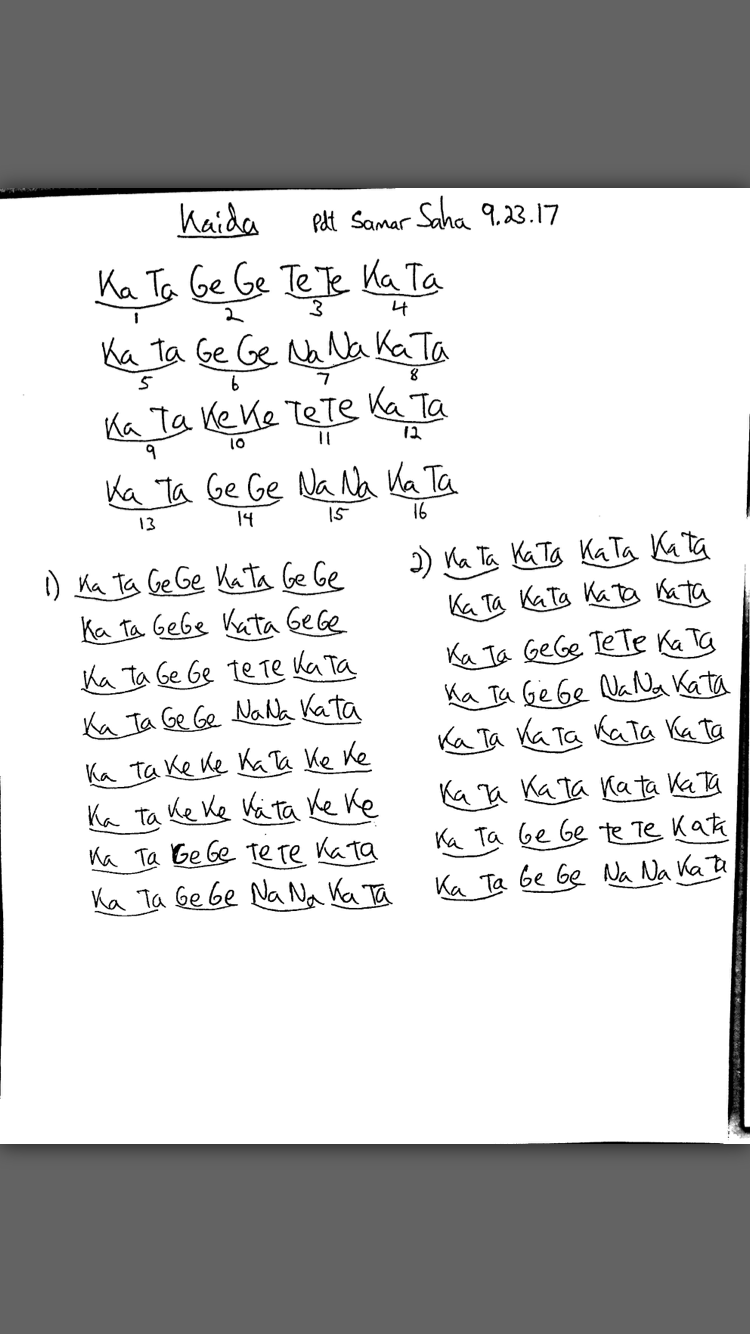 Kaida Pdt Samar Saha 9.23.17
Ka Ta Ge Ge Te Te Ka Ta
1 2 3 4
Ka ta Ge Ge Na Na Ka Ta
5 6 7 8
Ka Ta Ke Ke Te Te Ka Ta
9 10 11 12
Ka Ta Ge Ge Na Na Ka Ta
13 14 15 16
1) Ka ta Ge Ge Ka Ta Ge Ge
Ka ta Ge Ge Ka ta Ge Ge
Ka Ta Ge Ge te Te Ka Ta
Ka Ta Ge Ge Na Na Ka ta
Ka Ta Ke Ke Ka Ta Ke Ke
Ka ta Ke Ke Ka ta Ke Ke
Ka Ta Ge Ge Te Te Ka ta
Ka Ta Ge Ge Na Na Ka Ta
2) Ka Ta Ka Ta Ka Ta Ka ta
Ka Ta Ka Ta Ka ta Ka ta
Ka Ta Ge Ge Te Te Ka Ta
Ka Ta Ge Ge Na Na Ka ta
Ka Ta Ka Ta Ka Ta Ka Ta
Ka Ta Ka Ta Ka ta Ka Ta
Ka Ta Ge Ge te Te Ka ta
Ka Ta Ge Ge Na Na Ka Ta